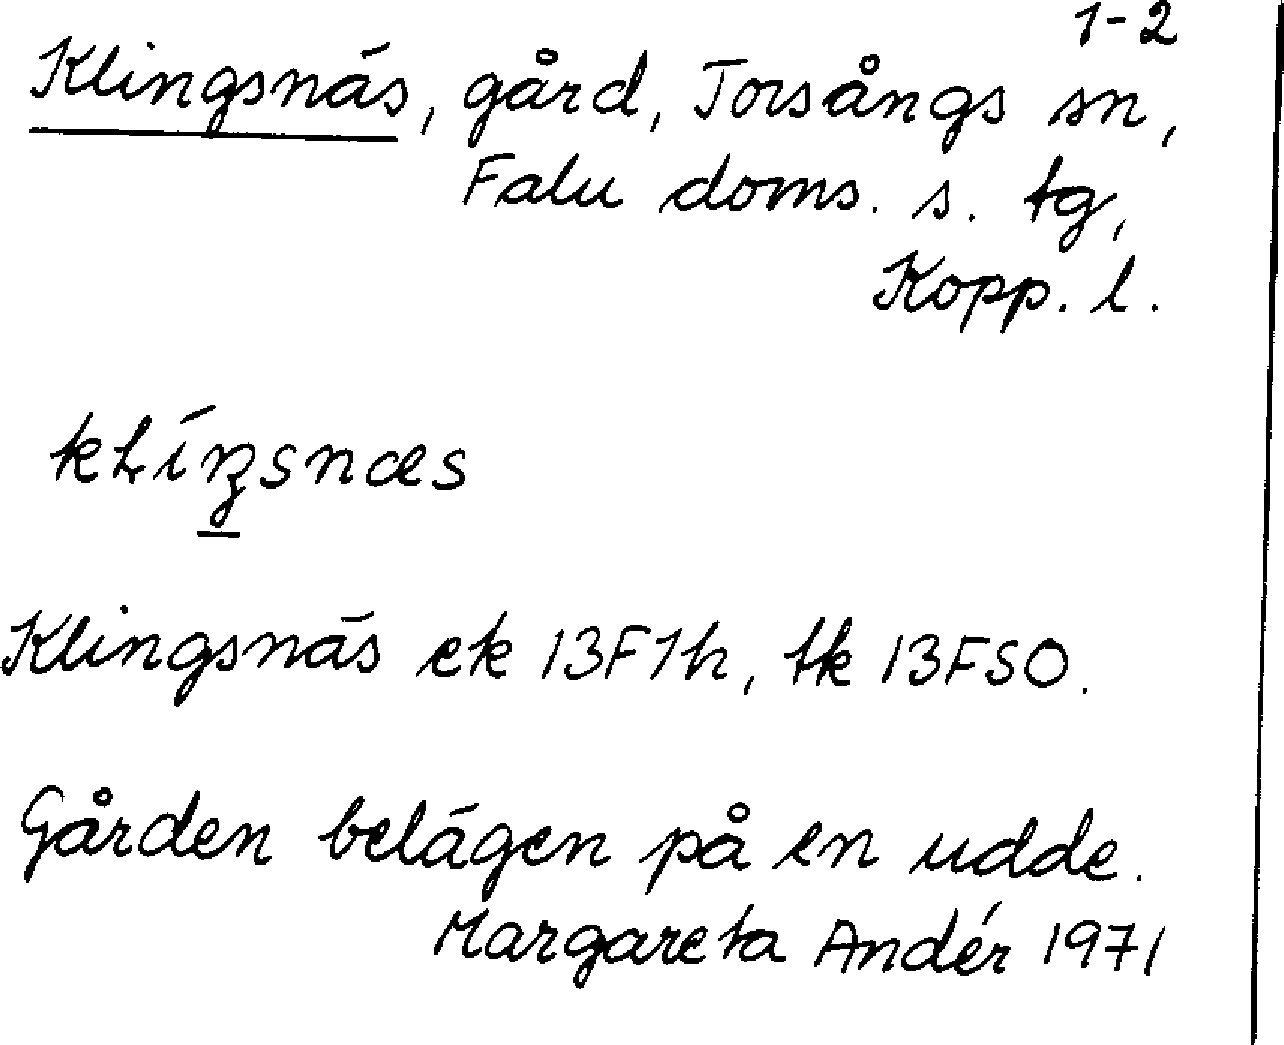 1-2
Klingsnäs, gård, Torsångs sn,
Falu doms. s. tg,
Kopp. l.
Klingsnäs ek 13F1h, tk 13FSO.
Gården belägen på en udde.
Margareta Andér 1971